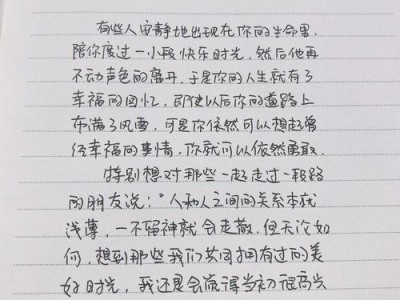 有些人安静地出现在你的生命里，
陪你度过一小段快乐时光，然后他再
不动声色的离开，于是你的人生就有了
幸福的回忆，即使以后你的道路上
布满了风雪，可是你依然可以想起曾
经幸福的事情，你就可以依然勇敢。
特别想对那些一起走过一段路
的朋友说："人和人之间的关系本就
浅薄，一不留神就会走散，但无论如
何，想到那些我们共同拥有过的美
好时光，我还是会觉得当初很高兴